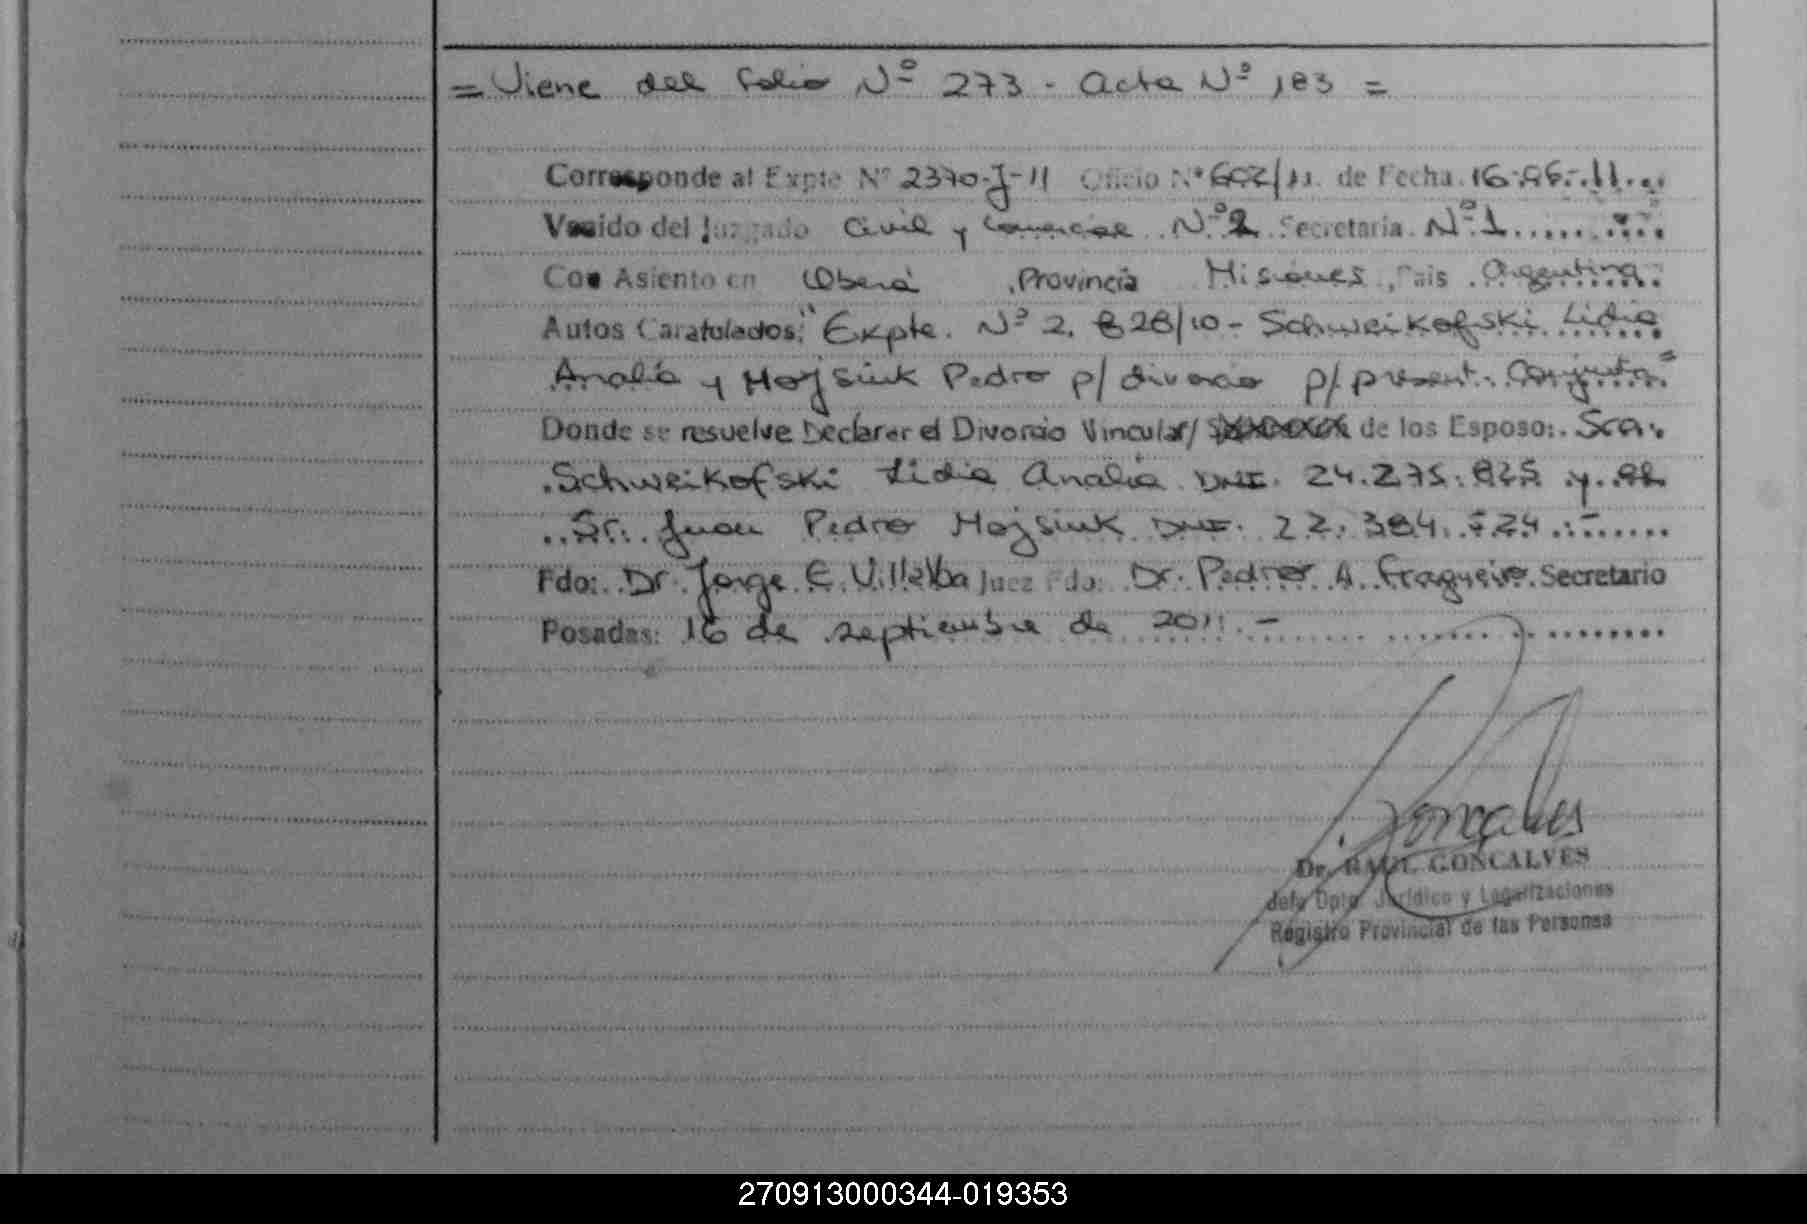 = Viene del folio Nº 273 - Acta Nº 183 =
Corresponde al Expte Nº 2370-J-11 Oficio Nº 602/11. de Fecha 16.06.11...
Venido del Juzgado Civil y Comercial Nº 2 Secretaria Nº 1.........
Con Asiento en Oberá , Provincia Misiones, Pais Argentina.
Autos Caratulados: "Expte. Nº 2.828/10 - Schweikofski Lidia
Analia y Hojsiuk Pedro p/ divorcio p/ present. Conjunta"
Donde se resuelve Declarar el Divorcio Vincular/ de los Esposo: Sra.
Schweikofski Lidia Analia DNI. 24.275.825 y al
Sr. Juan Pedro Hojsiuk DNI. 22.384.724.-
Fdo: Dr. Jorge E. Villalba Juez Fdo: Dr. Pedro A. Fragueiro. Secretario
Posadas: 16 de septiembre de 2011.-
Goncalves
Dr. RAUL GONCALVES
Jefe Dpto. Jurídico y Legalizaciones
Registro Provincial de las Personas
270913000344-019353